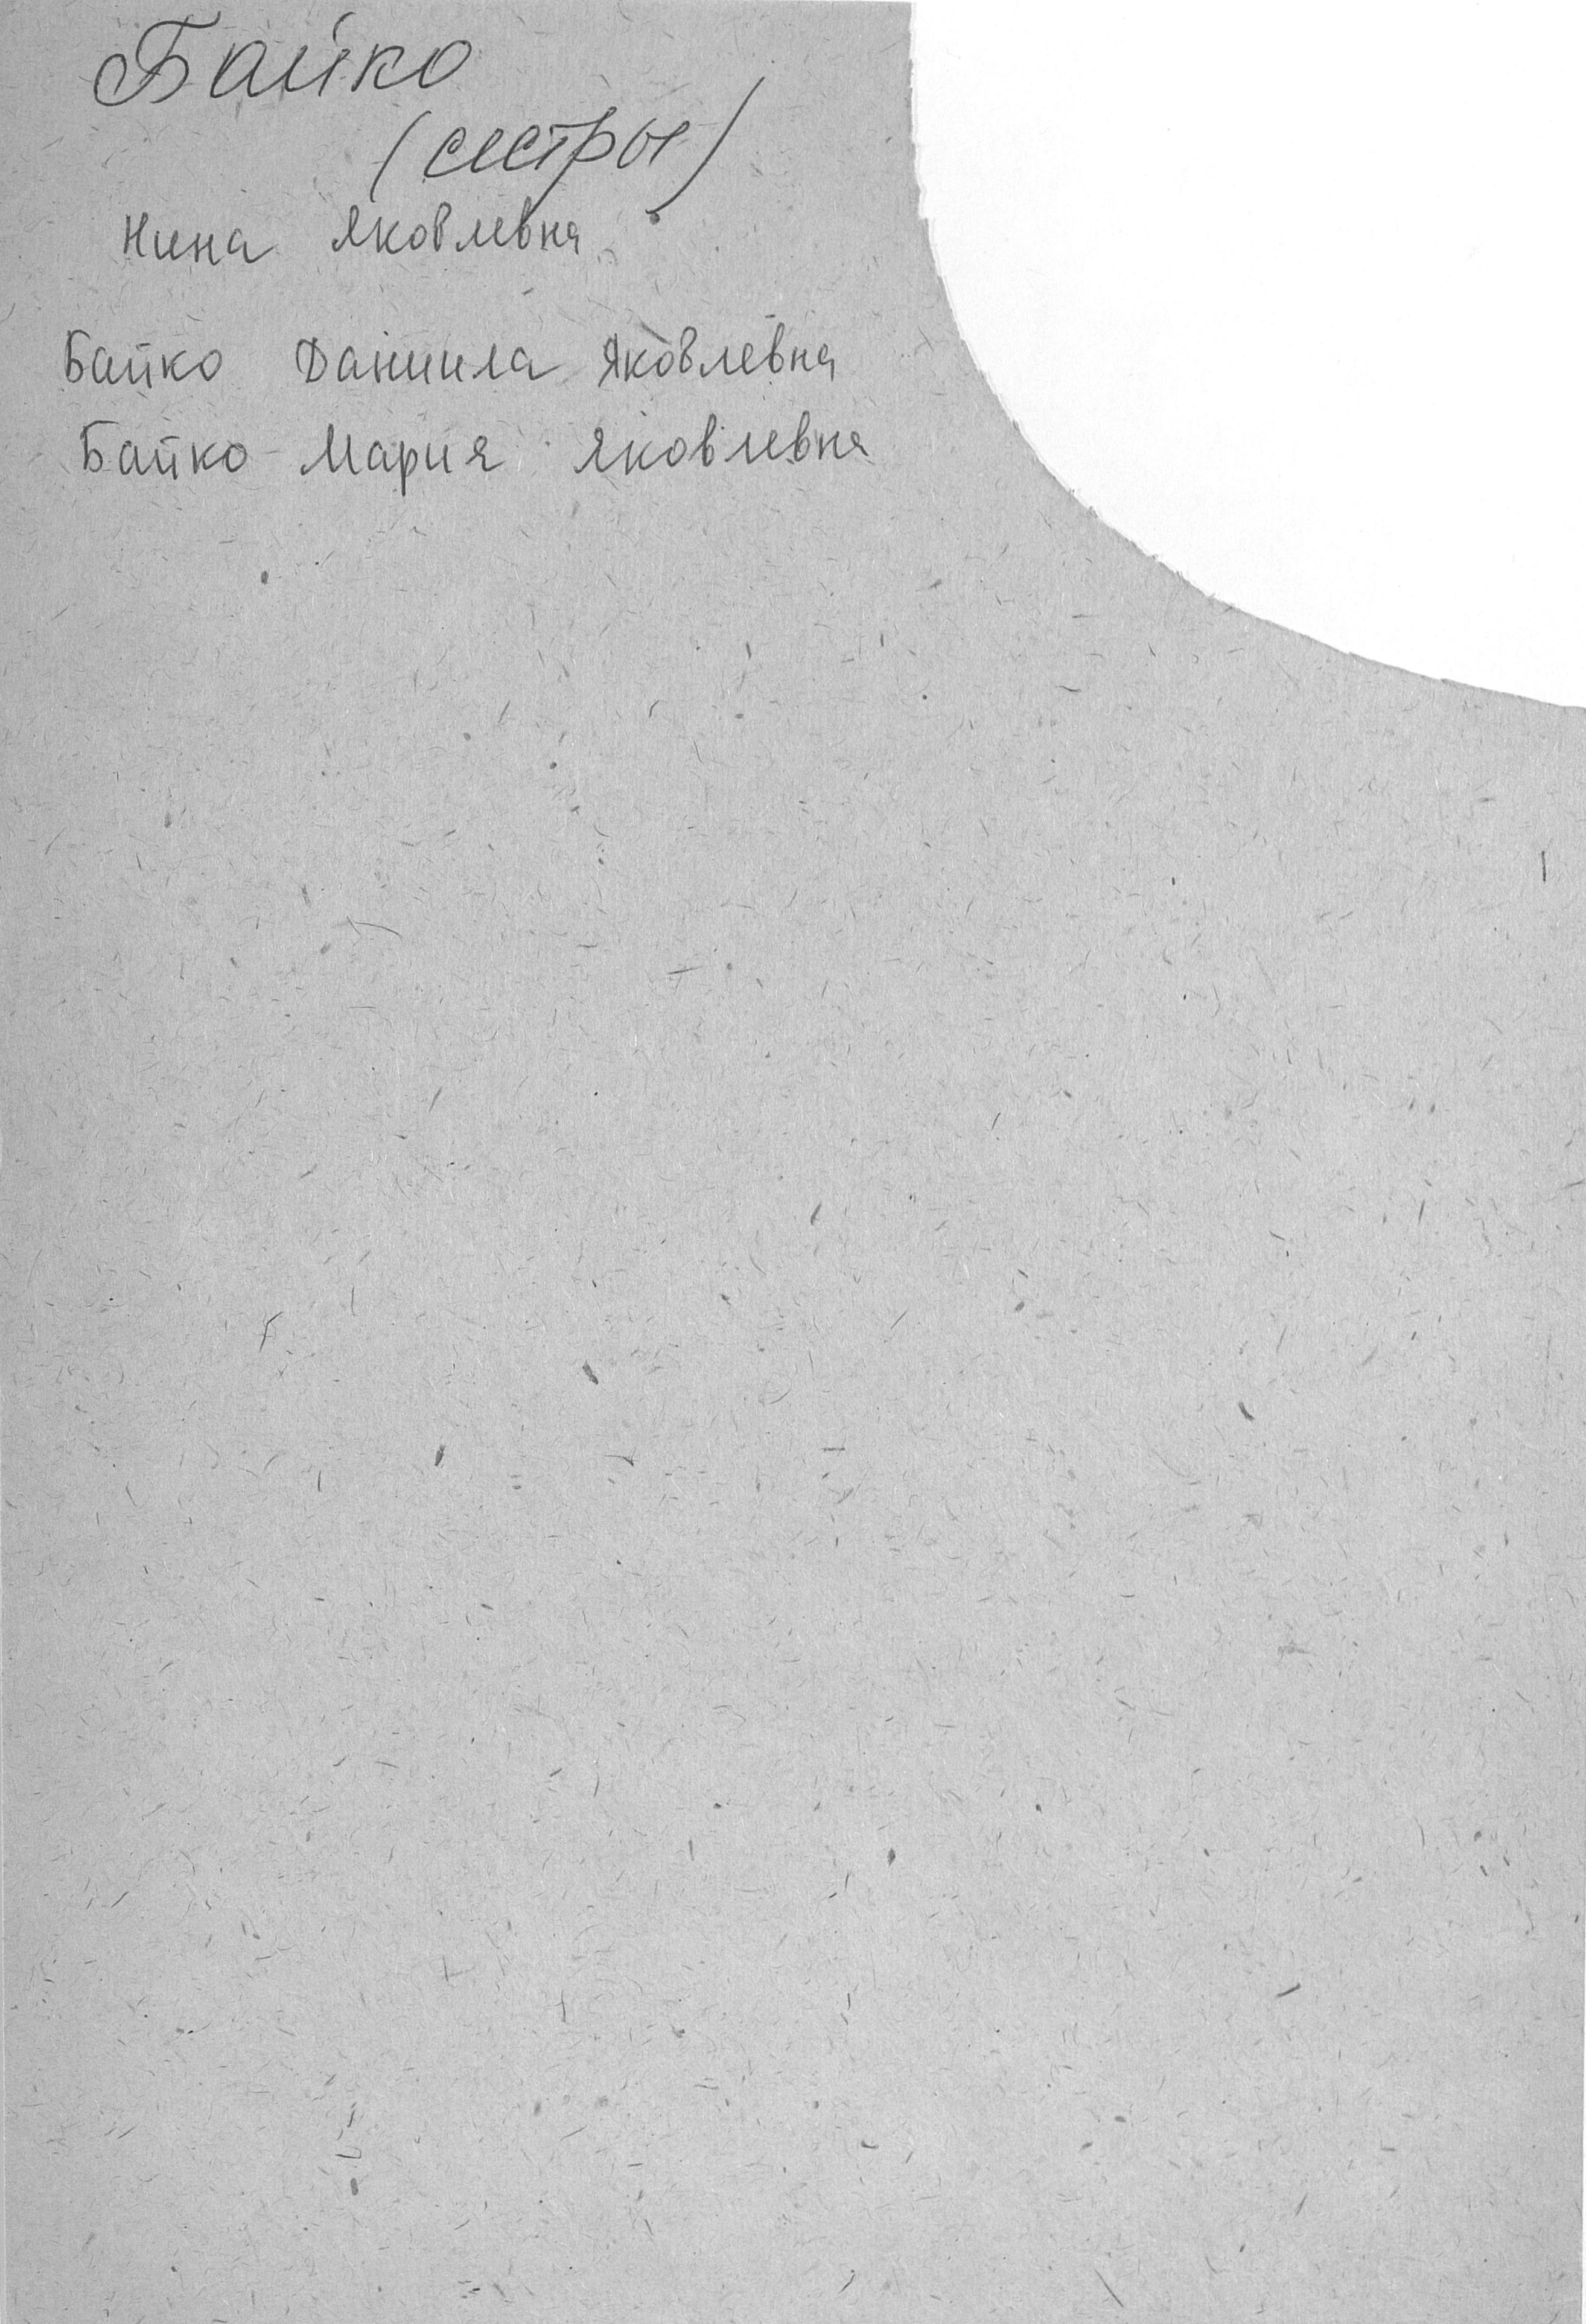 Байко
(сестры)
Нина Яковлевна
Байко Даниила Яковлевна
Байко Мария Яковлевна